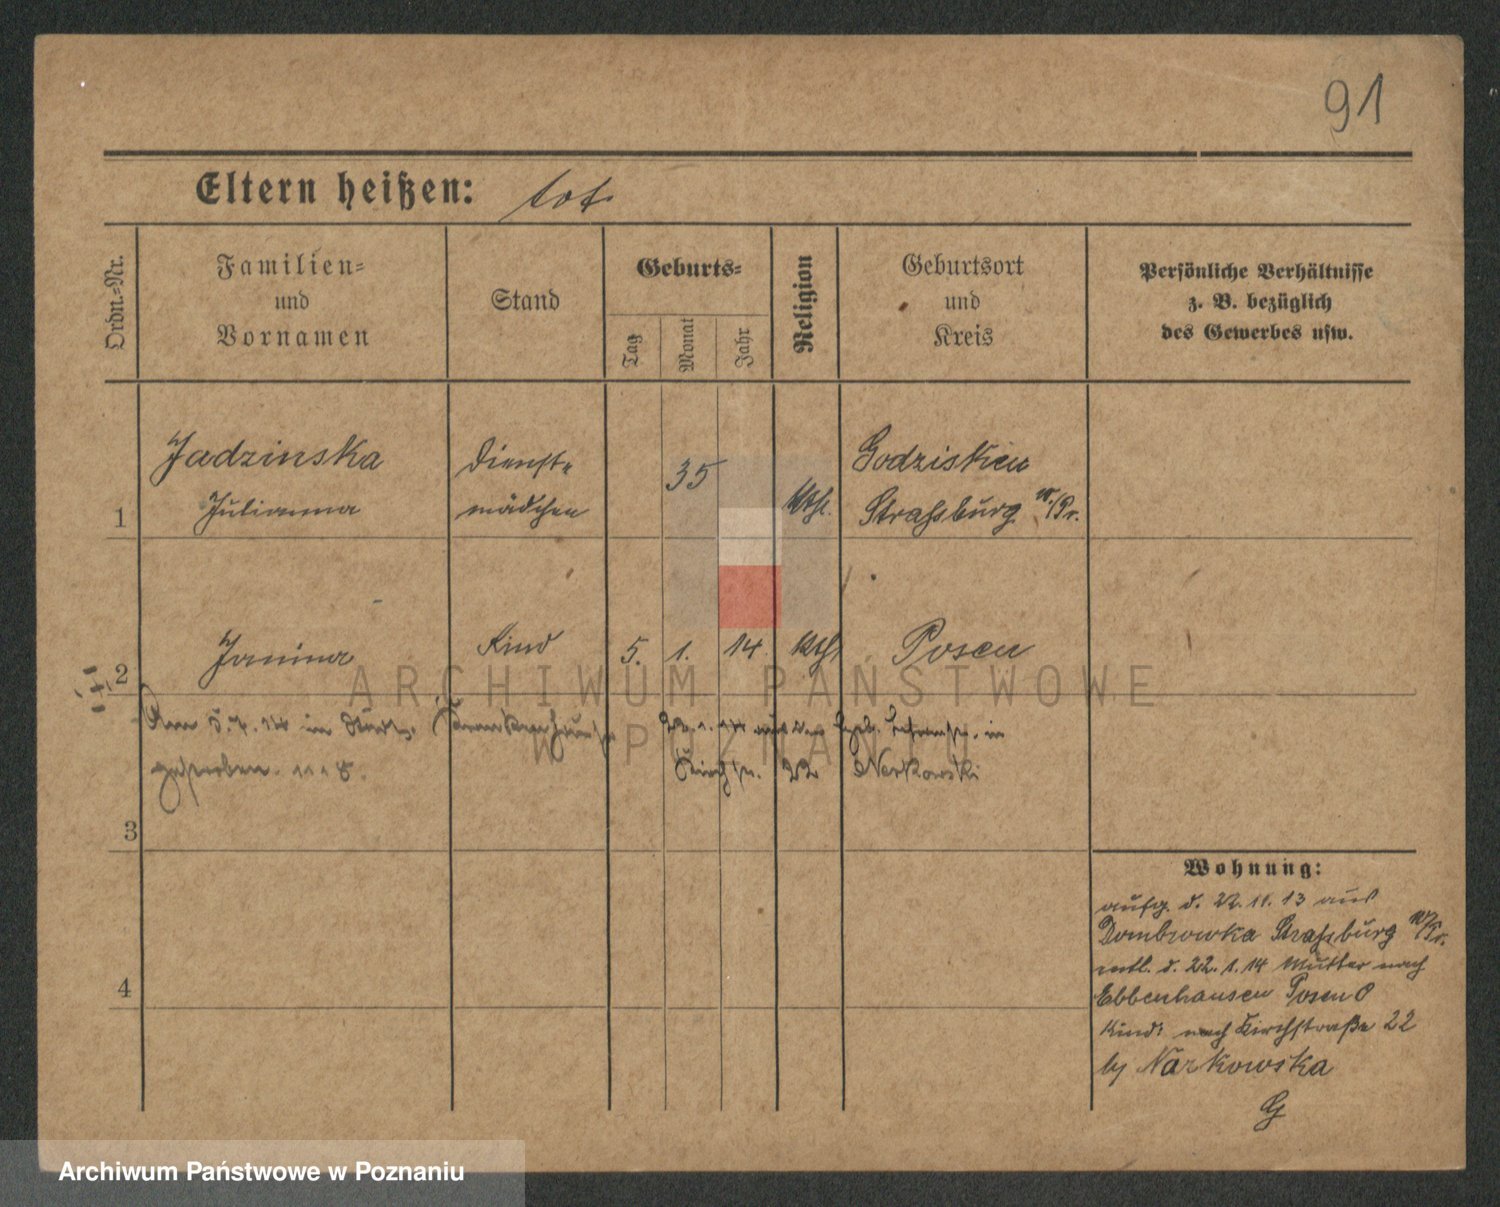 91
Eltern heißen: tot
Ordn.-Nr.
Familien-
und
Vornamen
Stand
Geburts-
Tag
Monat
Jahr
Religion
Geburtsort
und
Kreis
Persönliche Verhältnisse
z. B. bezüglich
des Gewerbes usw.
1
Jadzinska
Julianna
Dienst-
mädchen
35
kth.
Godziskien
Strassburg W./Pr.
2
Janina
Kind
5. 1. 14
kth.
Posen
Am 5.7.14 in Krankenhause
gestorben.
in
Kirchstr. 22 Narkowski
3
4
Wohnung:
aufg. d. 22.11.13 aus
Dombrowka Strassburg W/Pr.
entl. d. 22.1.14 Mutter nach
Ebbenhausen Posen O
Kind: nach Kirchstraße 22
by Narkowska
G
ARCHIWUM PAŃSTWOWE
W POZNANIU
Archiwum Państwowe w Poznaniu